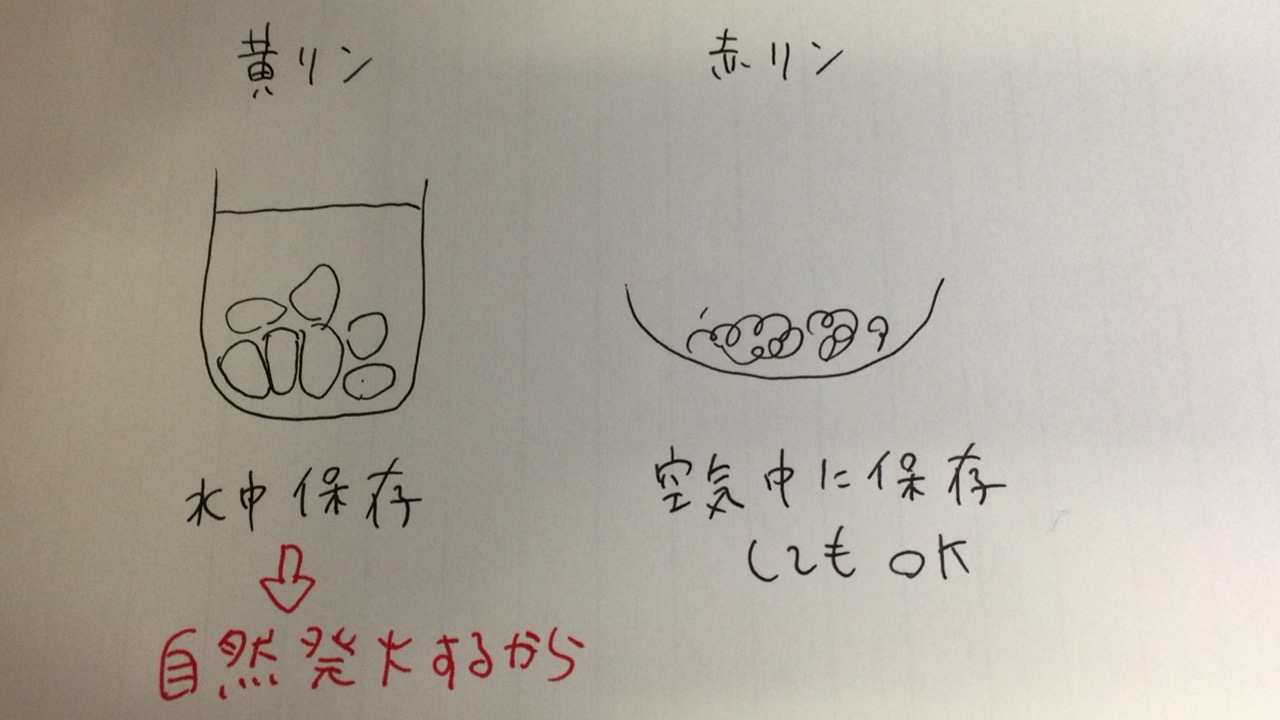 黄リン
赤リン
水中保存
空気中に保存
してもOK
自然発火するから